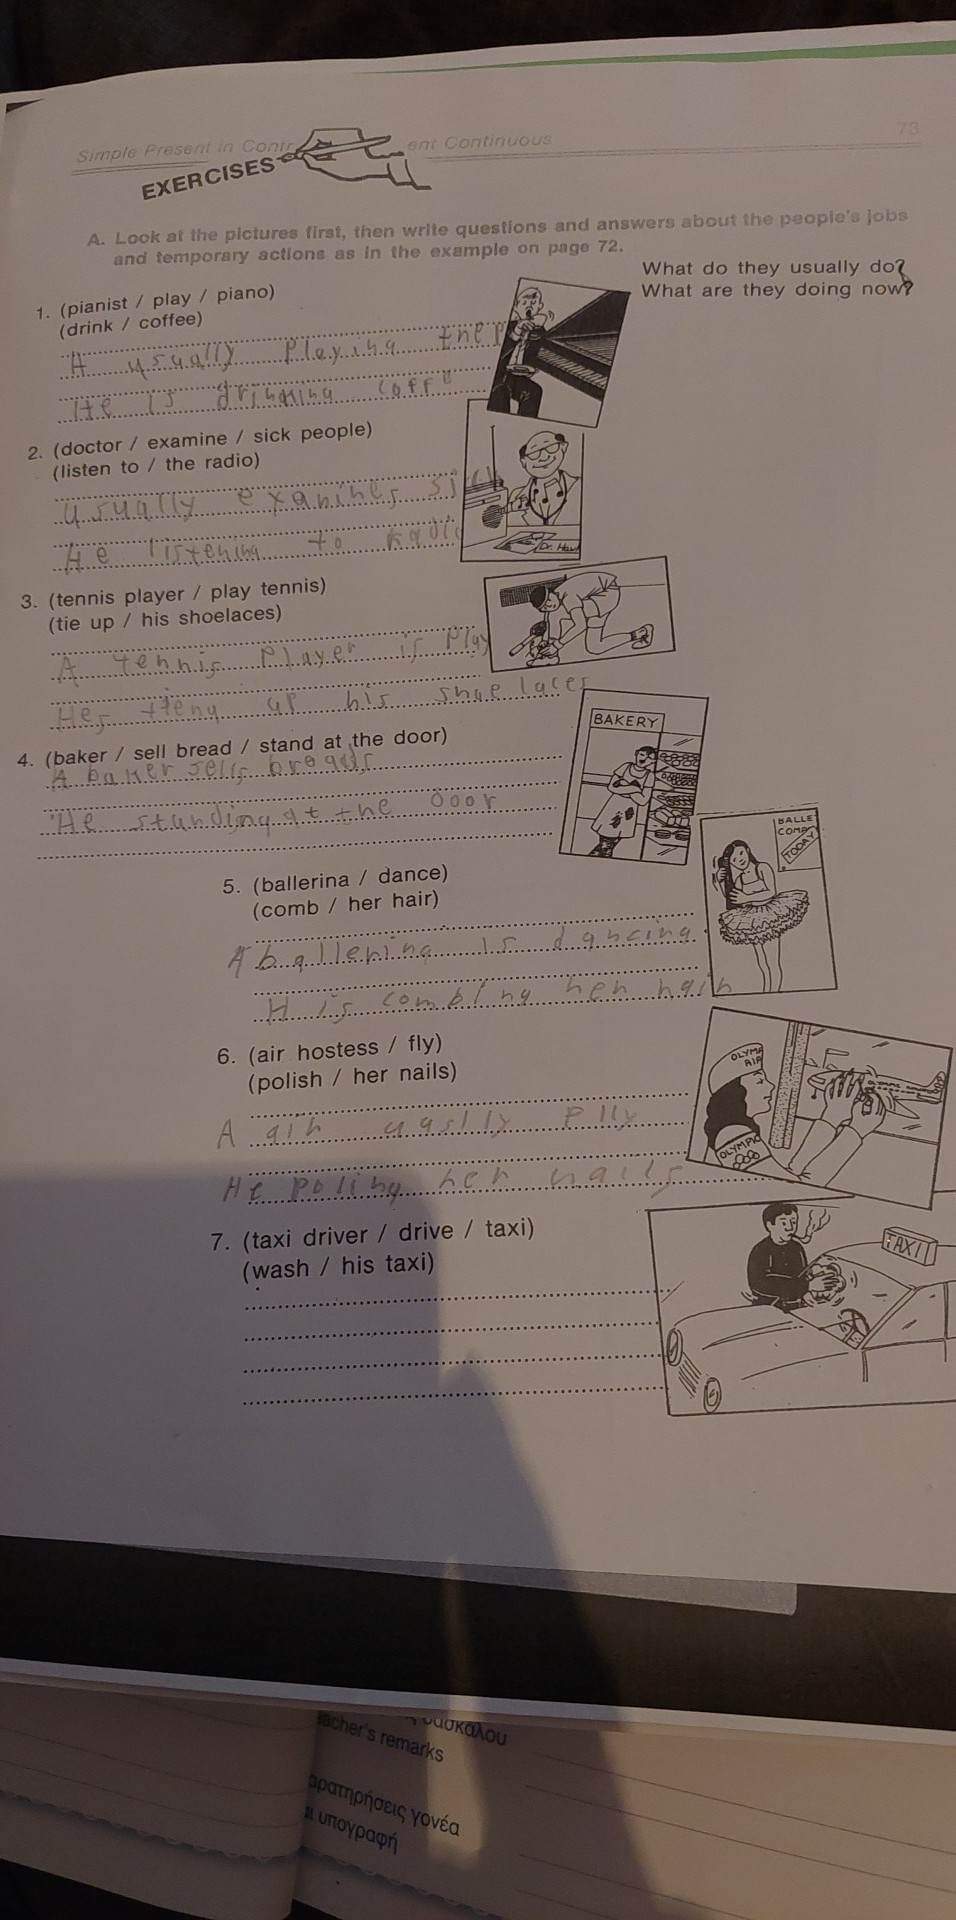 73
Simple Present in Contr ent Continuous
EXERCISES
A. Look at the pictures first, then write questions and answers about the people's jobs
and temporary actions as in the example on page 72.
What do they usually do?
What are they doing now?
1. (pianist / play / piano)
(drink / coffee)
usually playing the p
He is drinking coffe
2. (doctor / examine / sick people)
(listen to / the radio)
usually examines sick
He listening to radio
Dr. Haw
3. (tennis player / play tennis)
(tie up / his shoelaces)
A tennis player is play
up his shoe laces
4. (baker / sell bread / stand at the door)
A baker sells breads
He standing at the door
BAKERY
5. (ballerina / dance)
(comb / her hair)
A ballerina is dancing
H is combing her hair
BALLE
COMP
TODAY
6. (air hostess / fly)
(polish / her nails)
A air
He poling her nails
OLYMP
AIR
OLYMPIC
7. (taxi driver / drive / taxi)
(wash / his taxi)
TAXI
δασκάλου
acher's remarks
αρατηρήσεις γονέα
αι υπογραφή